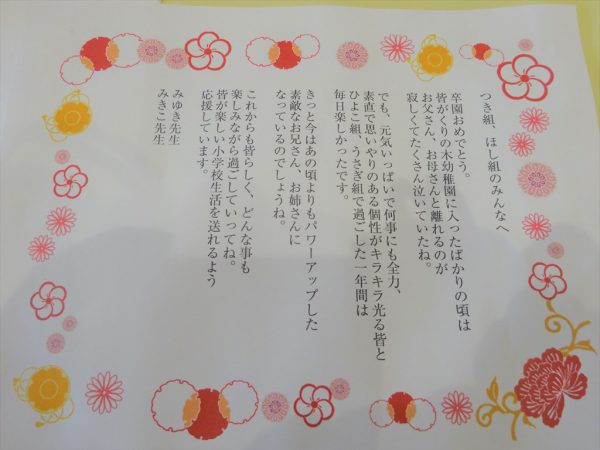 つき組、ほし組のみんなへ
卒園おめでとう。
皆がくりの木幼稚園に入ったばかりの頃は
お父さん、お母さんと離れるのが
寂しくてたくさん泣いていたね。
でも、元気いっぱいで何事にも全力、
素直で思いやりのある個性がキラキラ光る皆と
ひよこ組、うさぎ組で過ごした一年間は
毎日楽しかったです。
きっと今はあの頃よりもパワーアップした
素敵なお兄さん、お姉さんに
なっているのでしょうね。
これからも皆らしく、どんな事も
楽しみながら過ごしていってね。
皆が楽しい小学校生活を送れるよう
応援しています。
みゆき先生
みきこ先生